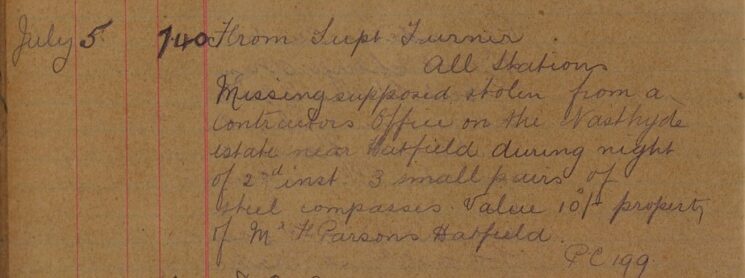 July 5 740 From Supt Turner
All Stations
Missing supposed stolen from a
Contractors Office on the Nasthyde
estate near Hatfield during night
of 2nd inst 3 small pairs of
steel compasses. Value 10/- property
of Mr F Parsons Hatfield.
PC 199